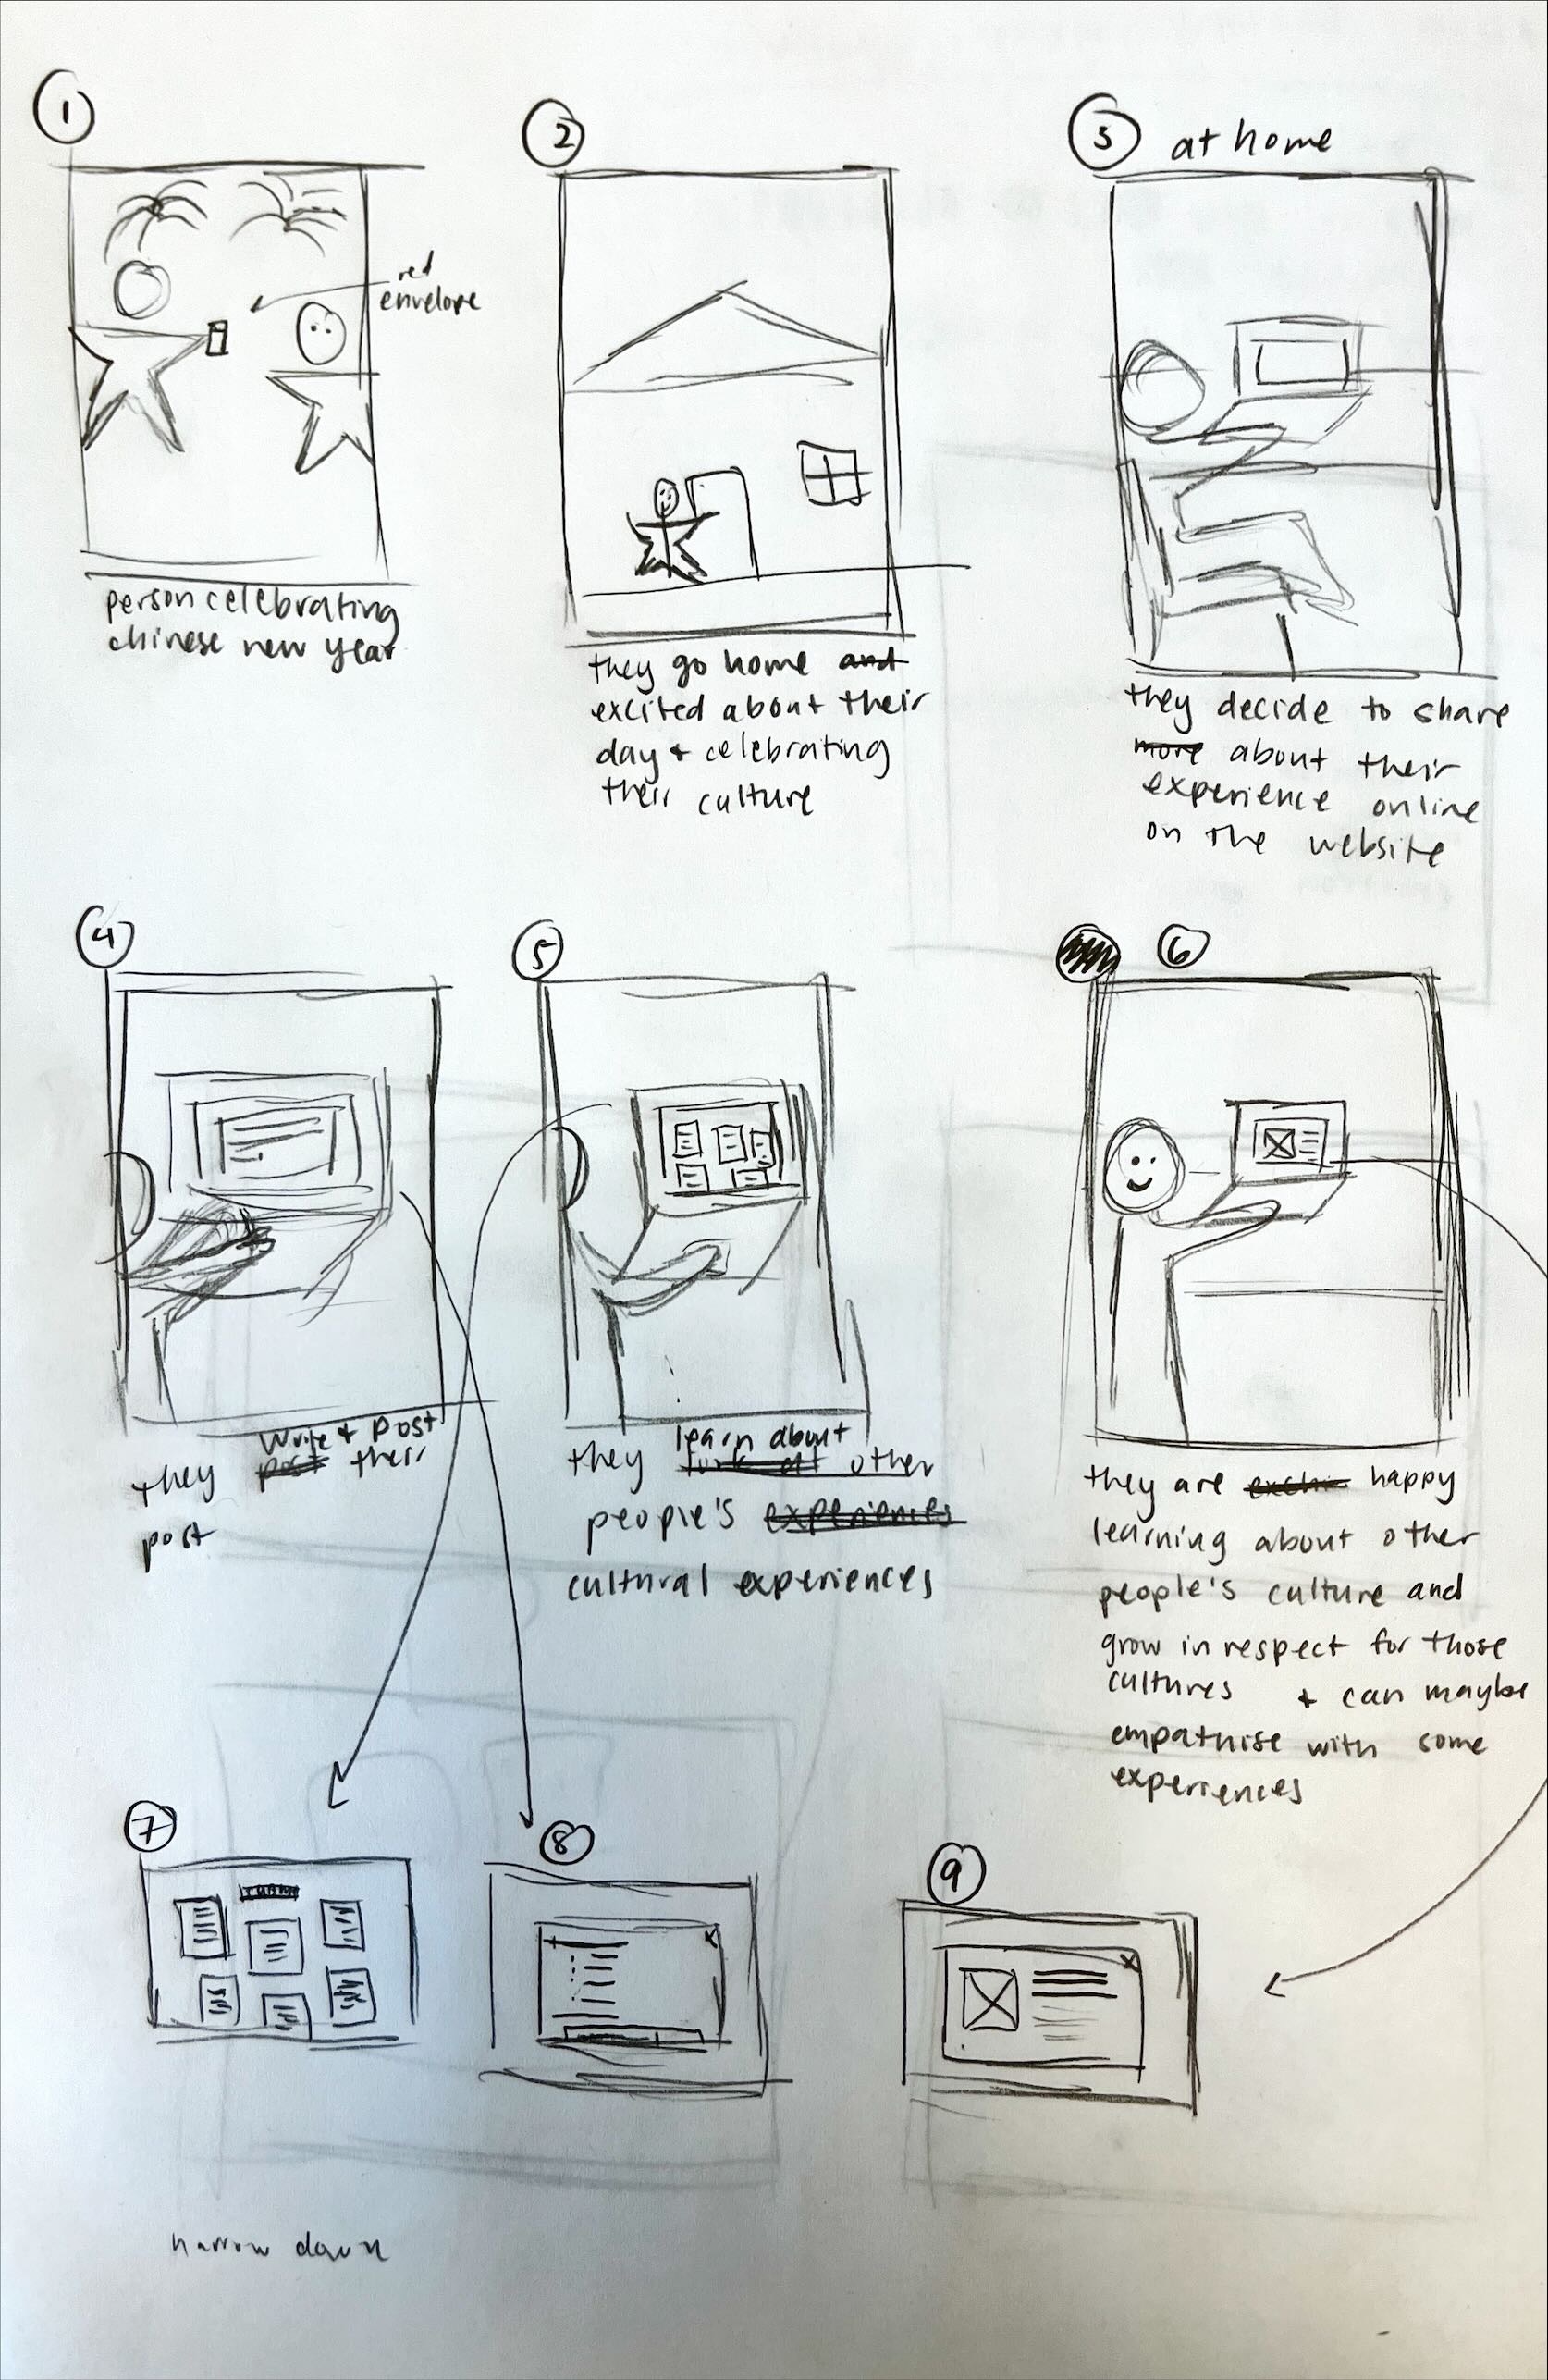 1
red
envelope
person celebrating
chinese new year
2
they go home and
excited about their
day + celebrating
their culture
3 at home
they decide to share
more about their
experience online
on the website
4
write + post
they post their
post
5
learn about
they look at other
people's experiences
cultural experiences
6
they are happy
learning about other
people's culture and
grow in respect for those
cultures + can maybe
empathise with some
experiences
7
8
9
narrow down